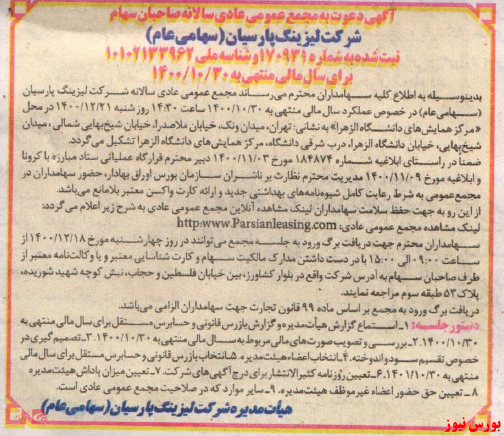 آگهی دعوت به مجمع عمومی عادی سالانه صاحبان سهام
شرکت لیزینگ پارسیان (سهامی عام)
ثبت شده به شماره ۱۷۰۹۳۱ و شناسه ملی ۱۰۱۰۲۱۳۳۹۶۲
برای سال مالی منتهی به ۱۴۰۰/۱۰/۳۰
بدینوسیله به اطلاع کلیه سهامداران محترم می‌رساند مجمع عمومی عادی سالانه شرکت لیزینگ پارسیان
(سهامی عام) در خصوص عملکرد سال مالی منتهی به ۱۴۰۰/۱۰/۳۰ ساعت ۱۴:۳۰ روز شنبه ۱۴۰۰/۱۲/۲۱ در محل
«مرکز همایش‌های دانشگاه الزهرا» به نشانی: تهران، میدان ونک، خیابان ملاصدرا، خیابان شیخ‌بهایی شمالی، میدان
شیخ‌بهایی، خیابان دانشگاه الزهرا، درب شرقی دانشگاه، مرکز همایش‌های دانشگاه الزهرا تشکیل می‌گردد.
ضمنا در راستای ابلاغیه شماره ۱۸۴۸۷۴ مورخ ۱۴۰۰/۱۱/۰۳ دبیر محترم قرارگاه عملیاتی ستاد مبارزه با کرونا
و ابلاغیه مورخ ۱۴۰۰/۱۱/۰۹ مدیریت محترم نظارت بر ناشران سازمان بورس اوراق بهادار، حضور سهامداران در
مجمع‌عمومی به شرط رعایت کامل شیوه‌نامه‌های بهداشتی جدید و ارائه کارت واکسن معتبر بلامانع می‌باشد.
از این رو به جهت حفظ سلامت سهامداران لینک مشاهده آنلاین مجمع عمومی عادی به شرح زیر اعلام می‌گردد:
لینک مشاهده مجمع عمومی عادی: http:www.Parsianleasing.com
سهامداران محترم جهت دریافت برگ ورود به جلسه مجمع می‌توانند در روز چهارشنبه مورخ ۱۴۰۰/۱۲/۱۸ از
ساعت ۰۹:۰۰ الی ۱۵:۰۰ با در دست داشتن مدارک مالکیت سهام و کارت شناسایی معتبر و یا وکالت‌نامه معتبر از
طرف صاحبان سهام به آدرس شرکت واقع در بلوار کشاورز، بین خیابان فلسطین و حجاب، نبش کوچه شهید شوریده،
پلاک ۵۳ طبقه سوم مراجعه نمایند.
دریافت برگ ورود به مجمع بر اساس ماده ۹۹ قانون تجارت جهت سهامداران الزامی می‌باشد.
دستور جلسه: ۱- استماع گزارش هیأت‌مدیره و گزارش بازرس قانونی و حسابرس مستقل برای سال مالی منتهی به
۱۴۰۰/۱۰/۳۰. ۲- بررسی و تصویب صورت‌های مالی مربوط به سال مالی منتهی به ۱۴۰۰/۱۰/۳۰. ۳- تصمیم‌گیری در
خصوص تقسیم سود و اندوخته. ۴- انتخاب اعضاء هیئت‌مدیره. ۵- انتخاب بازرس قانونی و حسابرس مستقل برای سال مالی
منتهی به ۱۴۰۱/۱۰/۳۰. ۶- تعیین روزنامه کثیرالانتشار برای درج آگهی‌های شرکت. ۷- تعیین میزان پاداش هیئت‌مدیره
۸- تعیین حق حضور اعضاء غیرموظف هیئت‌مدیره. ۹- سایر موارد که در صلاحیت مجمع عمومی عادی است.
هیأت مدیره شرکت لیزینگ پارسیان (سهامی عام)
بورس نیوز